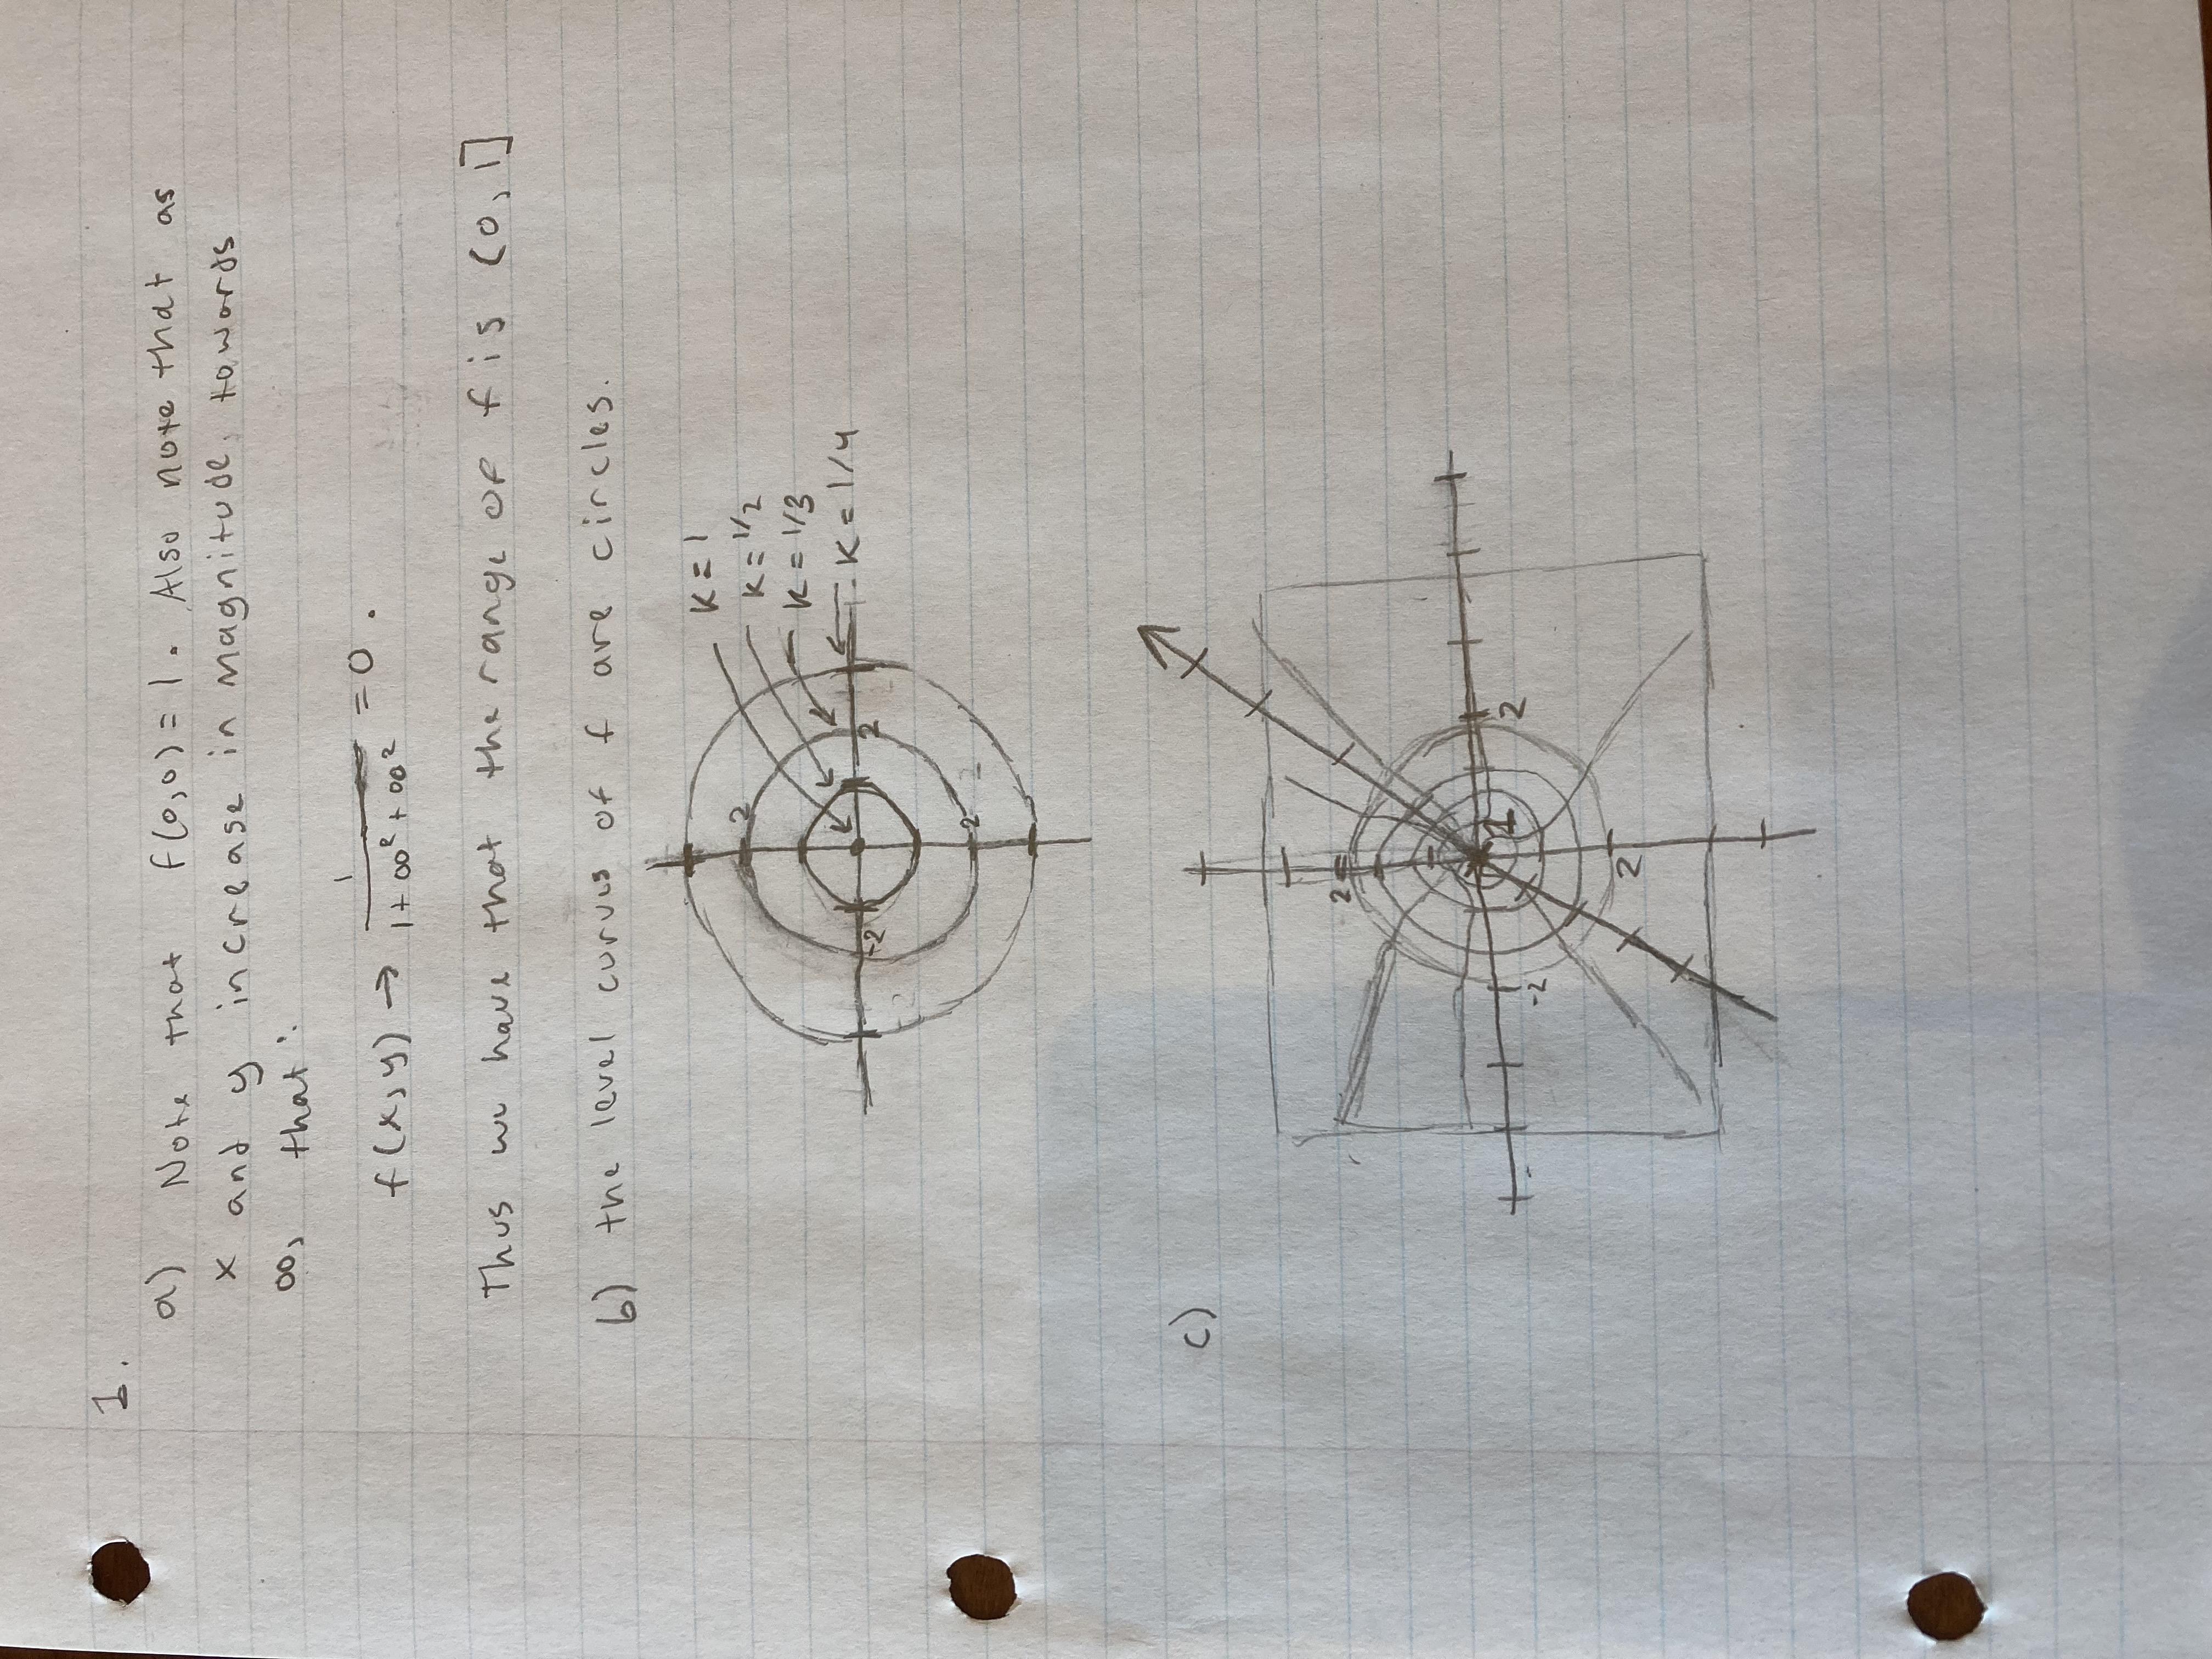 1.
a) Note that f(0,0) = 1. Also note that as
x and y increase in magnitude, towards
∞, that:
f(x,y) → 1/(1+∞²+∞²) = 0.
Thus we have that the range of f is (0, 1]
b) the level curves of f are circles.
K = 1
2
K = 1/2
K = 1/3
K = 1/4
-2
2
-2
2
c)
2
1
2
-2
2